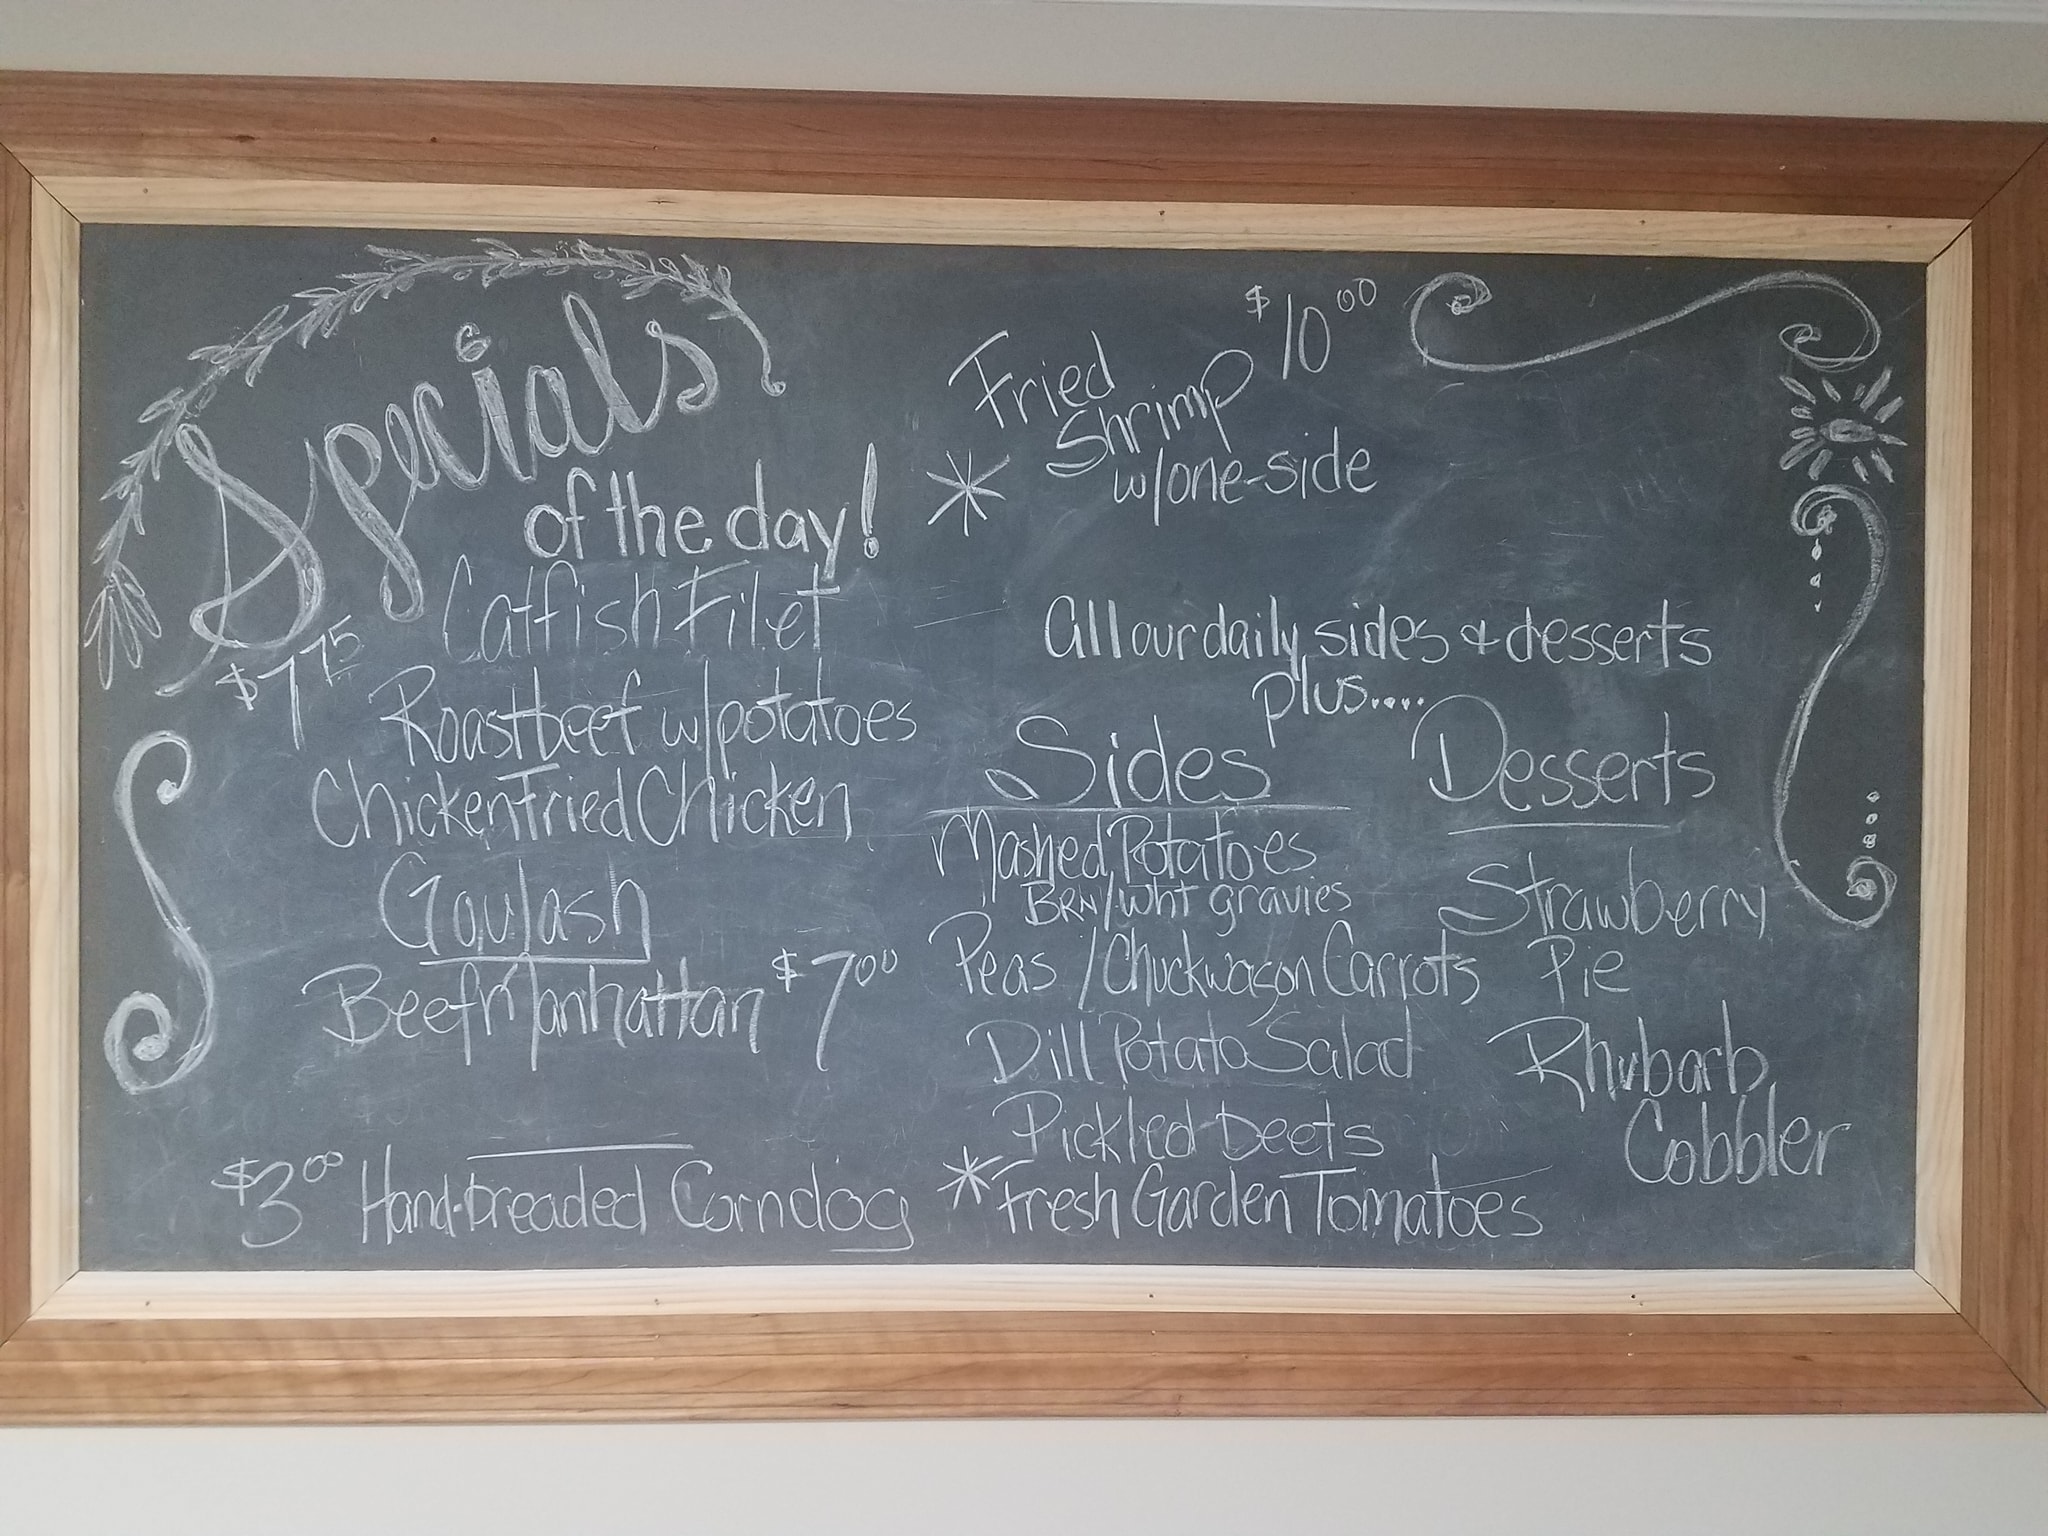 Specials
of the day!
Catfish Filet
$7.75
Roastbeef w/potatoes
Chicken Fried Chicken
Goulash
Beef Manhattan $7.00
$3.00 Hand-breaded Corndog
$10.00
Fried
Shrimp
* w/one-side
All our daily sides & desserts
plus....
Sides
Mashed Potatoes
BRN/Wht gravies
Peas / Chuckwagon Carrots
Dill Potato Salad
Pickled beets
* Fresh Garden Tomatoes
Desserts
Strawberry
Pie
Rhubarb
Cobbler